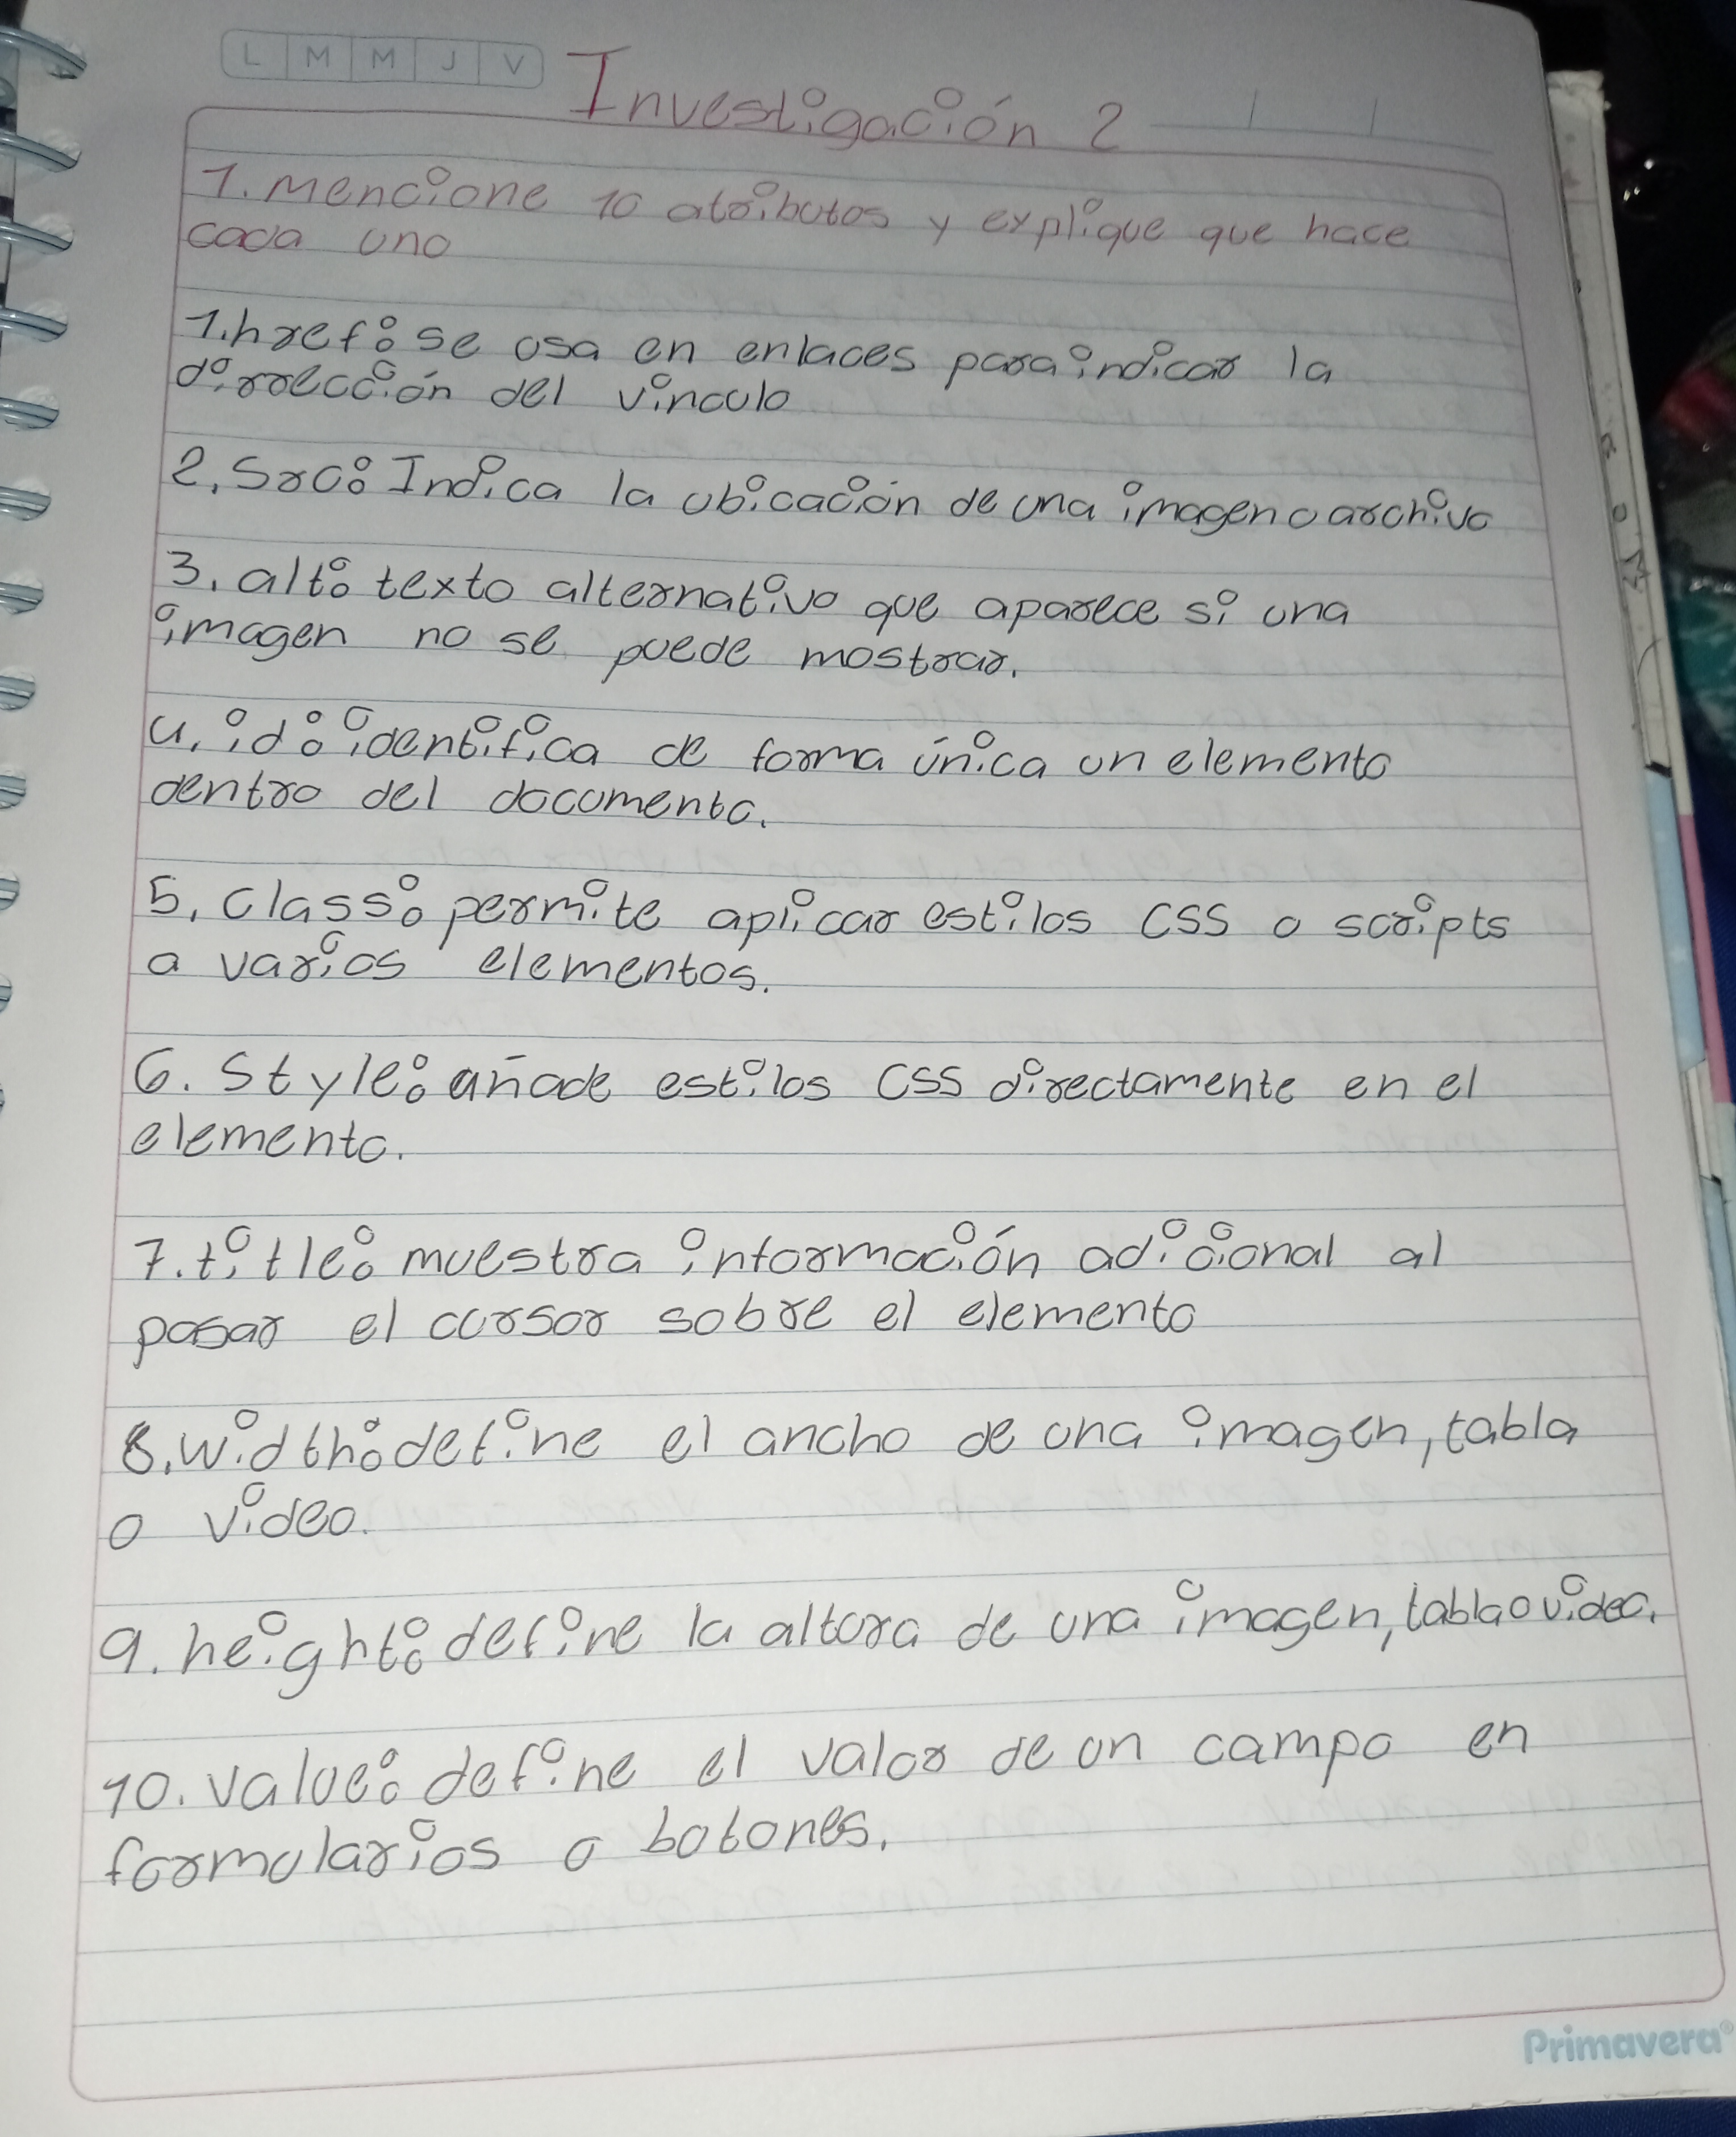 L M M J V
Investigación 2
1. mencione 10 atributos y explique que hace
cada uno
1. href: se usa en enlaces para indicar la
dirrección del vinculo
2. Src: Indica la ubicación de una imagen o archivo
3. alt: texto alternativo que aparece si una
imagen no se puede mostrar.
4. id: identifica de forma única un elemento
dentro del documento.
5. class: permite aplicar estilos CSS o scripts
a varios elementos.
6. Style: añade estilos CSS directamente en el
elemento.
7. title: muestra información adicional al
pasar el cursor sobre el elemento
8. width: define el ancho de una imagen, tabla
o video.
9. height: define la altura de una imagen, tabla o video.
10. value: define el valor de un campo en
formularios o botones.
Primavera®